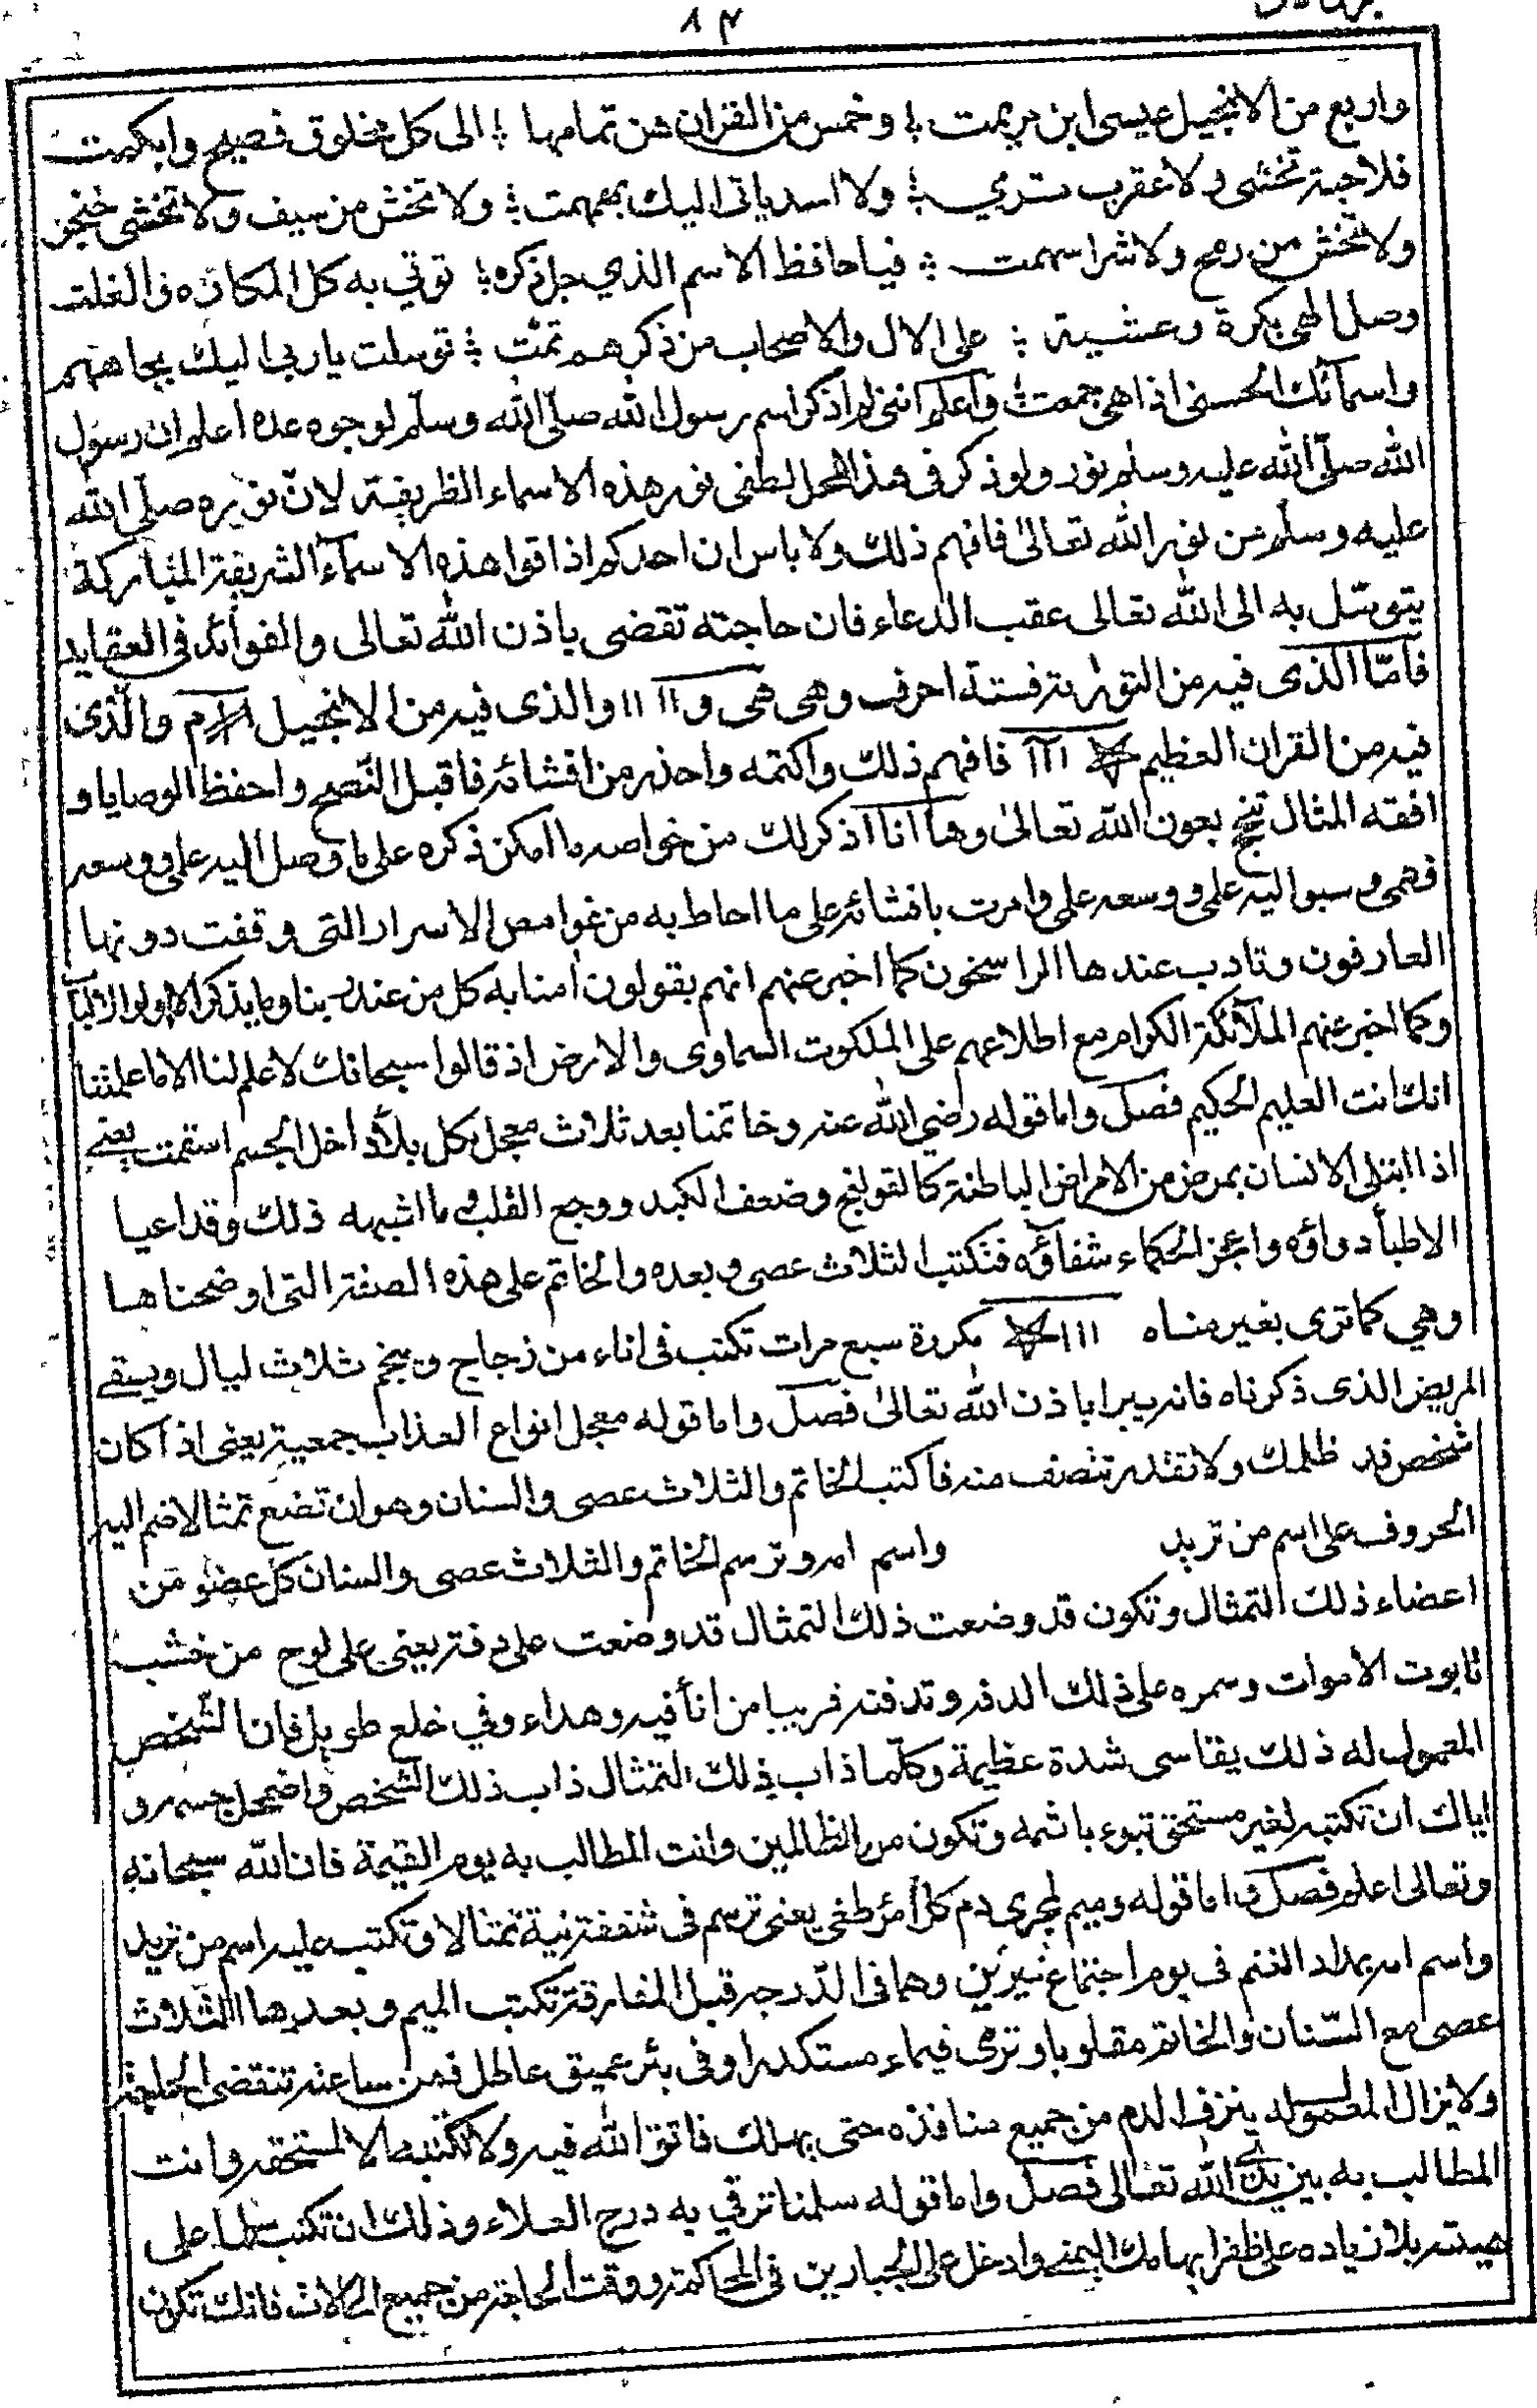 ٨٣
واربع من الانجيل عيسى ابن مريمت ؛ وخمس من القران هن تمامها ؛ الى كل مخلوق فصيح وابكمت
فلا حية تخشى ولا عقرب ترى ؛ ولا اسد ياتى اليك بهمهمت ؛ ولا تخش من سيف ولا تخشى خنجر
ولا تخش من رمح ولا شرا سهمت ؛ فيا حافظ الاسم الذي جل ذكره ؛ توقي به كل المكاره والغلت
وصل الهى بكرة وعشية ؛ على الال والاصحاب من ذكرهم تمت ؛ توسلت يا ربى اليك بجاههم
واسمآئك الحسنى اذا هى جمعت ؛ واعلم اننى لم اذكر اسم رسول الله صلّى الله وسلّم لوجوه عدة اعلم ان رسول
الله صلّى الله عليه وسلم نور ولو ذكر فى هذا المحل لطفى نور هذه الاسماء الظريفة لانّ نوره صلّى الله
عليه وسلّم من نور الله تعالىٰ فافهم ذلك ولا باس ان احدكم اذا قرا هذه الاسمآء الشريفة المباركة
يتوسّل به الى الله تعالى عقب الدعاء فان حاجته تقضى باذن الله تعالى والفوائد فى العقايد
فامّا الذى فيه من التوراة ترفستة احرف وهى هى و ١١ ١١ والذى فيه من الانجيل م والّذى
فيه من القران العظيم ١١١ فافهم ذلك واكتمه واحذر من افشائه فاقبل النّصح واحفظ الوصايا و
افقه المثال تنجح بعون الله تعالىٰ وها انا اذكر لك من خواصه ما امكن ذكره على ما وصل اليه علمى ووسعه
فهمى وسبو اليه علمى ووسعه على وامرت بافشائه على ما احاط به من غوامض الاسرار التى وقفت دونها
العارفون وتادب عندها الراسخون كما اخبر عنهم انهم يقولون اٰمنا به كل من عند ربنا وما يذكر الا اولوا الالباب
وكما اخبر عنهم الملآئكة الكرام مع اطلاعهم على الملكوت السماوى والارض اذ قالوا سبحانك لا علم لنا الا ما علمتنا
انك انت العليم الحكيم فصل واما قوله رضي الله عنه وخاتمنا بعد ثلاث معجل بكل بلاء داخل الجسم اسقمت يعنى
اذا ابتلى الانسان بمرض من الامراض الباطنة كالقولنج وضعف الكبد ووجع القلب وما اشبهه ذلك وقد اعيا
الاطبآء دواؤه واعجز الحكماء شفاؤه فتكتب الثلاث عصى وبعده والخاتم على هذه الصفة التى اوضحناها
وهي كما ترى بغير مناه ١١١ مكررة سبع مرات تكتب فى اناء من زجاج وينجم ثلاث ليال ويسقى
المريض الذى ذكرناه فانه يبرا باذن الله تعالىٰ فصل واما قوله معجل انواع العذاب جمعية يعنى اذا كان
شخص قد ظلمك ولا تقدر تنصف منه فاكتب الخاتم والثلاث عصى والسنان وهو ان تضع تمثالا ضم اليه
الحروف على اسم من تريد واسم امه وترسم الخاتم والثلاث عصى والسنان كل عضو من
اعضاء ذلك التمثال وتكون قد وضعت ذلك التمثال قد وضعت على دفتر يعنى على لوح من خشب
تابوت الاموات وسمره على ذلك الدفه وتدفنه قريبا من انآ فيه وهداء وفي خلع طويل فان الشخص
المعمول له ذلك يقاسى شدة عظيمة وكلّما ذاب ذلك التمثال ذاب ذلك الشخص واضمحل جسمه و
اياك ان تكتبه لغير مستحق تبوء باثمه وتكون من الظالمين وانت المطالب به يوم القيمة فان الله سبحانه
وتعالى اعلم فصل واما قوله وميم لمجرى دم كل امرئ طغى يعنى ترسم فى شقفة نية تمثالا وتكتب عليه اسم من تريد
واسم امه بمداد الغنم فى يوم اجتماع نيرين وهما فى الدّرجه قبل المفارقة تكتب الميم وبعدها الثلاث
عصى مع السّنان والخاتم مقلوبا وترمى فى ماء مستكدر او فى بئر عميق عاطل فمن ساعته تنقضى الحاجة
ولا يزال المعمول له ينزف الدم من جميع منافذه حتى يهلك فاتق الله فيه ولا تكتبه الا لمستحقه وانت
المطالب به بين يدى الله تعالى فصل واما قوله سلمنا ترقي به درج العلاء وذلك ان تكتب سلما على
هيئته بلا زياده على ظفر ابهامك اليمنى وادخل على الجبارين فى المحاكمة ووقت الحاجة من جميع فانك تكون